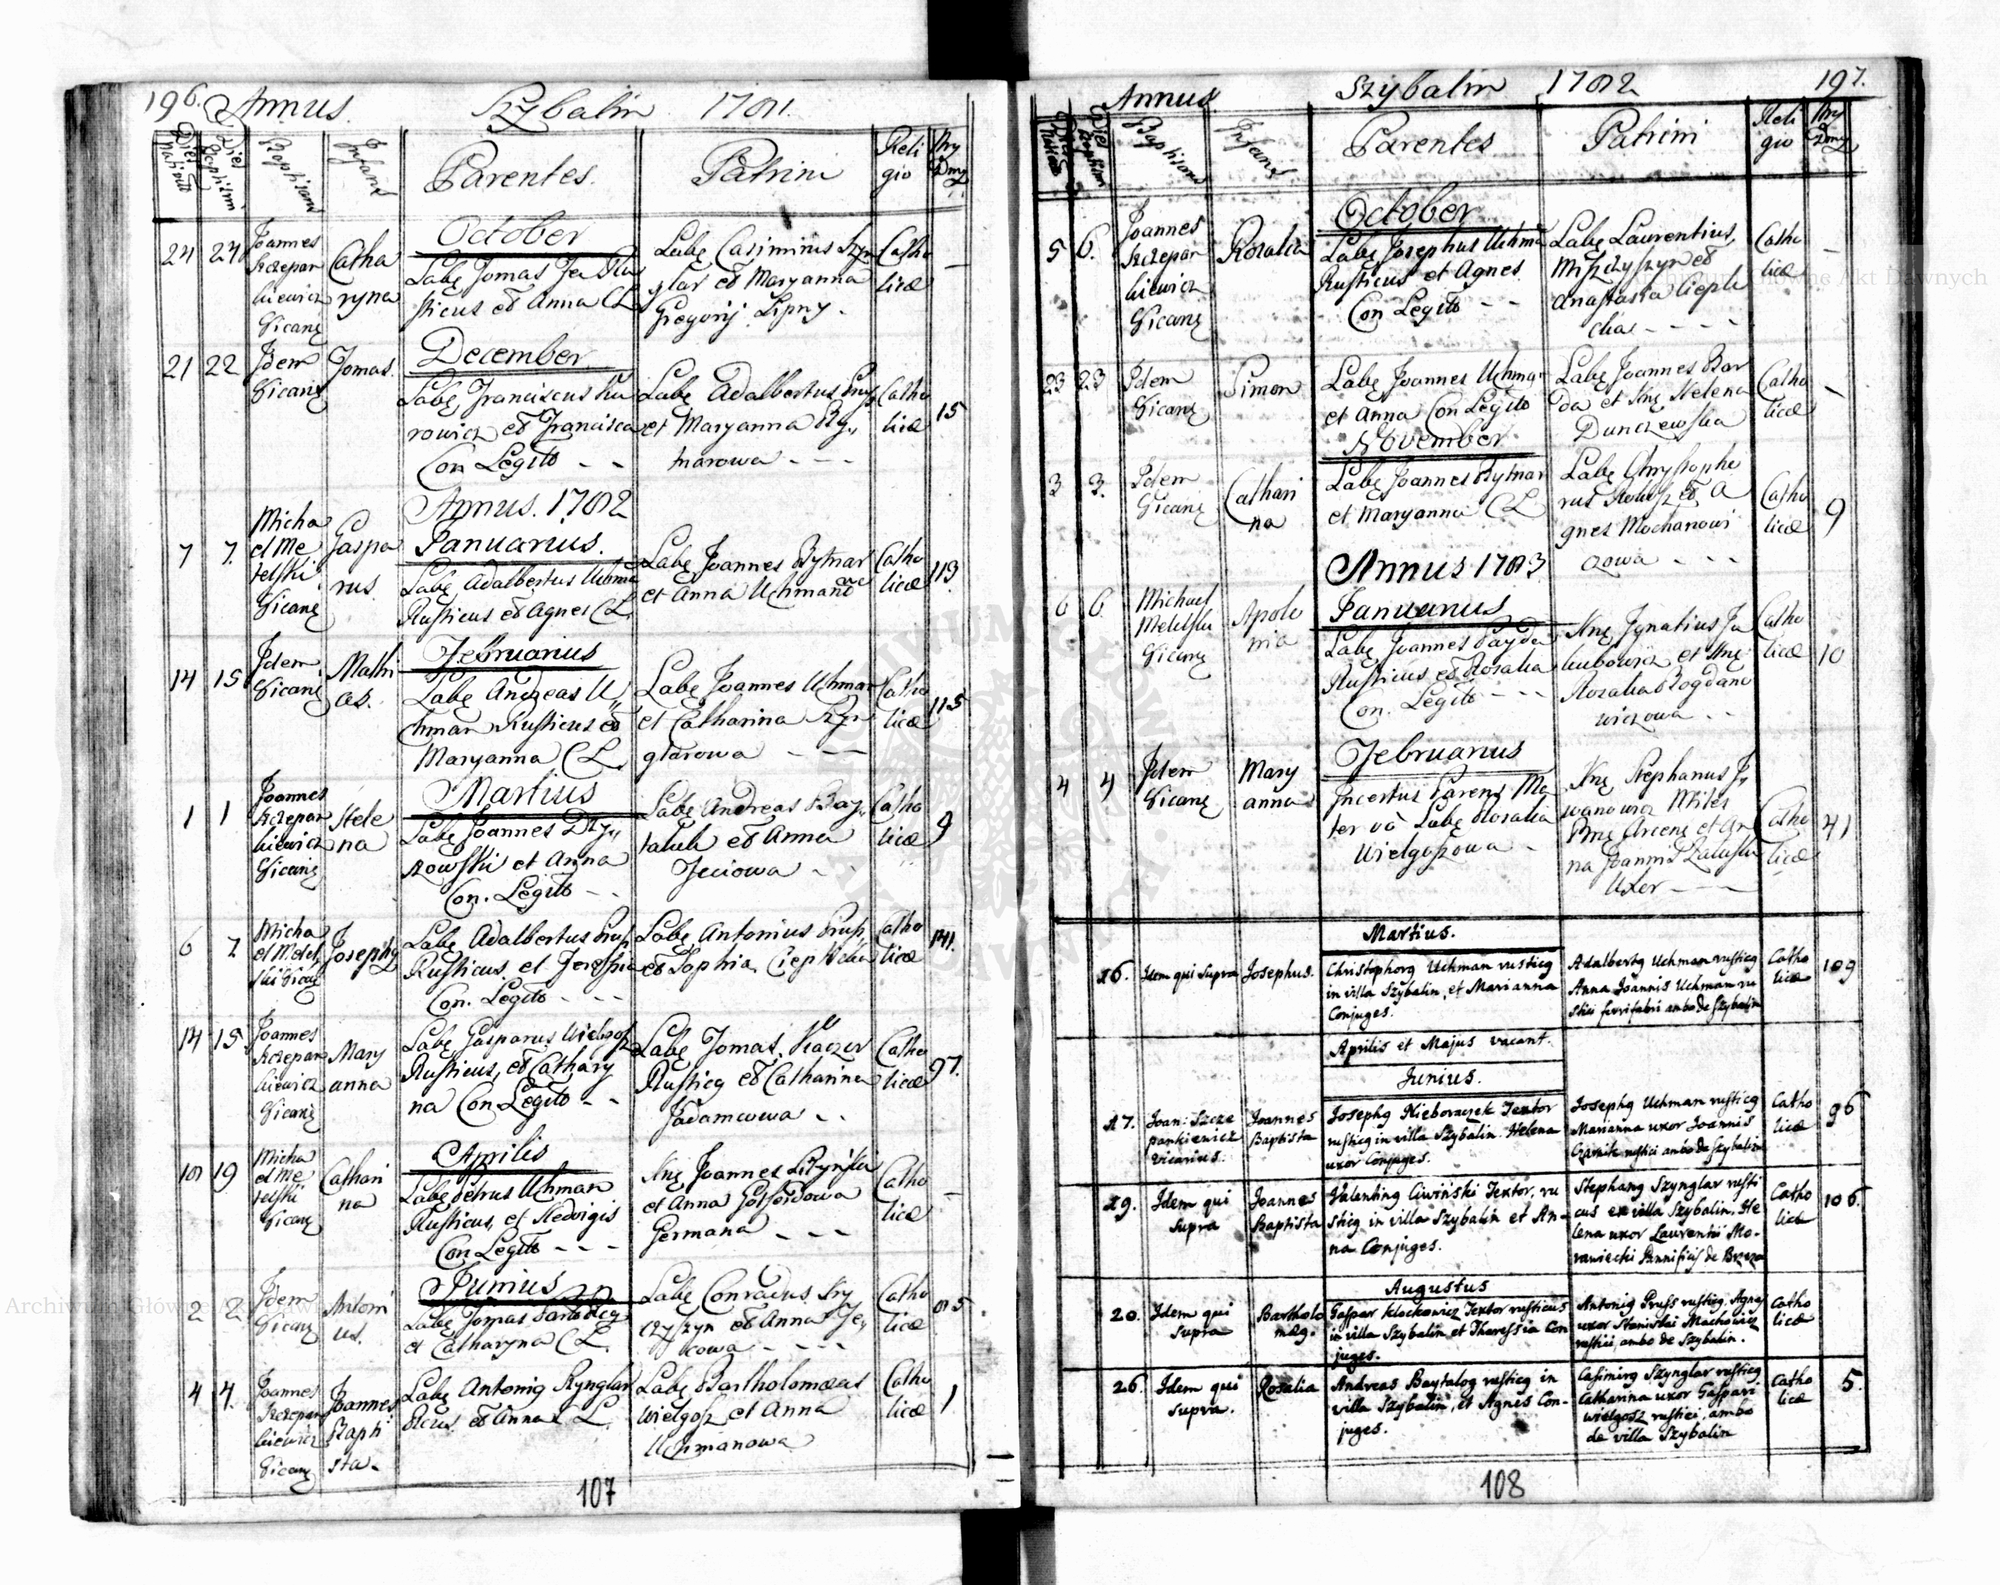 196.
Annus. Szybalin 1781.
Dies Nativit
Dies Baptismi
Baptisans
Infans
Parentes.
Patrini
Reli
gio
Nry
Dmg
October
24 24
Joannes
Szczepan
kiewicz
Vicarig
Catha
ryna
Labg Tomas
sticus et Anna CL
Labg Casimirus Szyn
glar et Maryanna
Gregorij Lipny -
Catho
licæ
—
December
21 22
Idem
Vicarig
Tomas.
Labg Franciscus Ku
rowicz et Francisca
Con Legito - -
Labg Adalbertus Prus
et Maryanna Ry„
tnarowa - - -
Catho
licæ
15
Annus. 1782
Januarius.
7 7.
Micha
el Me
telski
Vicarig
Gaspa
rus.
Labg Adalbertus Uchman
Rusticus et Agnes CL
Labg Joannes Rytnar
et Anna Uchmano
Catho
licæ
113.
Februarius
14 15
Idem
Vicarig
Mathi
as.
Labg Andreas U„
chman Rusticus et
Maryanna CL
Labg Joannes Uchman
et Catharina Szyn
glarowa - - -
Catho
licæ
115
Martius
1 1
Joannes
Szczepan
kiewicz
Vicarig
Hele
na
Labg Joannes Dzy„
zowski et Anna
Con. Legito - -
Labg Andreas Bay„
taluk et Anna
Feciowa - -
Catho
licæ
9
6 7
Micha
el Metel
ski Vicarig
Josephg
Labg Adalbertus Prus
Rusticus et Teressia
Con. Legito - - -
Labg Antonius Prus
et Sophia Cieplicha
Catho
licæ
141.
14 15
Joannes
Szczepan
kiewicz
Vicarig
Mary
anna
Labg Gasparus Wielgosz
Rusticus, et Cathary
na Con Legito - -
Labg Tomas Kaczor
Rusticg et Catharina
Jadamcowa - -
Catho
licæ
97.
Aprilis
18 19
Micha
el Me
telski
Vicarig
Cathari
na
Labg Petrus Uchman
Rusticus, et Hedvigis
Con Legito - - -
Joannes Lizynski
et Anna
Germana - - -
Catho
licæ
-
Junius
2 2
Idem
Vicarig
Antoni
us.
Labg Tomas
et Catharyna CL.
Labg Conradus Kry
czyszyn et Anna Fe„
cowa - - -
Catho
licæ
85
4 4.
Joannes
Szczepan
kiewicz
Vicarig
Joannes
Bapti
sta -
Labg Antonig Szynglar
et Anna CL
Labg Bartholomæus
Wielgosz et Anna
Uchmanowa
Catho
licæ
1.
107
Annus Szybalin 1782 197.
Dies Nativit
Dies Baptismi
Baptisans
Infans
Parentes
Patrini
Reli
gio
Nry
Dmg
October
5 6.
Joannes
Szczepan
kiewicz
Vicarig
Rozalia
Labg Josephus Uchma
Rusticus et Agnes
Con Legito - -
Labg Laurentius
Myszczyszyn et
Anastasia Ciepli
cha - - - -
Catho
licæ
—
23 23
Idem
Vicarig
Simon
Labg Joannes Uchman
et Anna Con Legito
Labg Joannes Bar
da et Helena
Dunczewska
Catho
licæ
—
November
3 3.
Idem
Vicarig
Cathari
na
Labg Joannes Rytnar
et Maryanna CL
Labg Chrystopho
rus et A
gnes Mochanowi
czowa - - -
Catho
licæ
9
Annus 1783
Januarius
6 6.
Michael
Metelski
Vicarig
Apolo
nia
Labg Joannes Payda
Rusticus et Rozalia
Con. Legito - - -
Ignatius Ja
kubowicz et
Rozalia Bogdano
wiczowa - -
Catho
licæ
10
Februarius
4 4
Idem
Vicarig
Mary
anna
Incertus Parens Ma
ter vo Labg Rosalia
Wielgoszowa -
Stephanus I„
wanowicz Miles
et An
na Joannis Zaluski
Uxor - - -
Catho
licæ
41
Martius.
16.
Idem qui supra
Josephus.
Christophorg Uchman rusticg
in villa Szybalin, et Marianna
Conjuges.
Adalbertg Uchman rusticg
Anna Joannis Uchman ru
stici ferrifabri ambo de Szybalin
Catho
licæ
109
Aprilis et Majus vacant.
Junius.
17.
Joan: Szcze
pankiewicz
vicarius.
Joannes
Baptista
Josephg Nieboraczek Textor
rusticg in villa Szybalin. Helena
uxor Conjuges.
Josephg Uchman rusticg
Marianna uxor Joannis
Czarnik rustici ambo de Szybalin
Catho
licæ
96
29.
Idem qui
supra
Joannes
Baptista
Valenting Ciwiński Textor, ru
sticg in villa Szybalin et An-
na Conjuges.
Stephang Szynglar rusti
cus ex villa Szybalin. He
lena uxor Laurentii Mo-
rawiecki Pannificis de Brzeza
Catho
licæ
106.
Augustus
20.
Idem qui
supra
Bartholo
mæg.
Gaspar Klockowicz Textor rusticus
in villa Szybalin et Theressia Con
juges.
Antonig Pruss rusticg. Agnes
uxor Stanislai Machowicz
rustici ambo de Szybalin.
Catho
licæ
26.
Idem qui
supra.
Rosalia
Andreas Baytalog rusticg in
villa Szybalin, et Agnes Con-
juges.
Casimirg Szynglar rusticg.
Catharina uxor Gaspari
Wielgosz rustici, ambo
de villa Szybalin
Catho
licæ
5.
108
Archiwum Główne Akt Dawnych